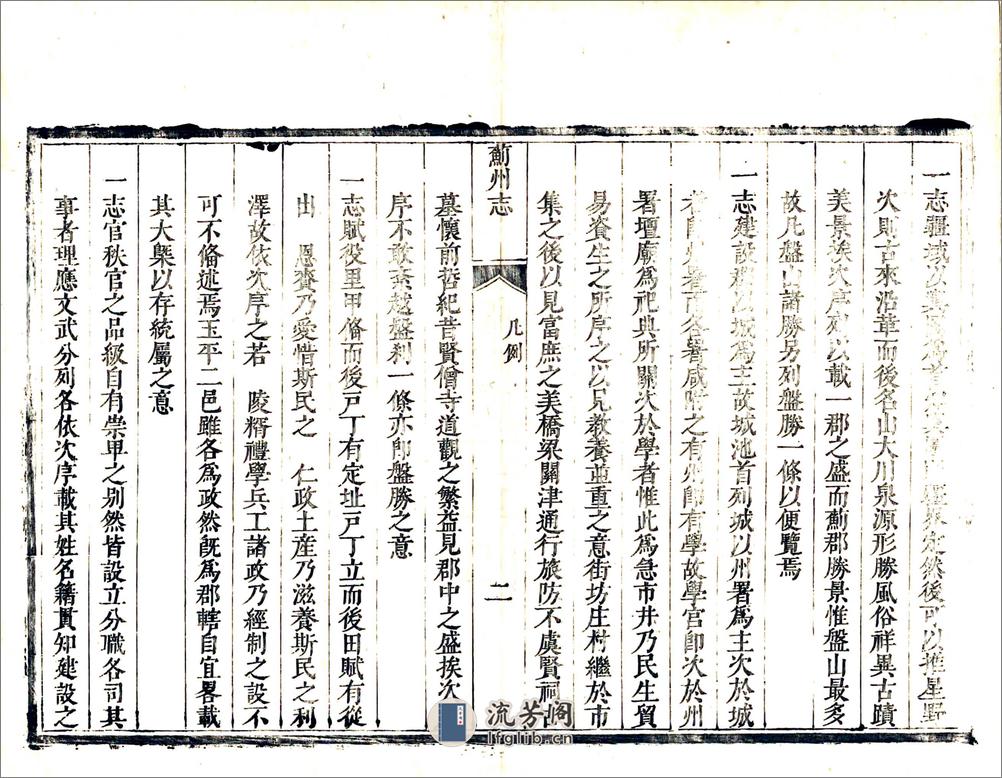 一志疆域以為首定然後可以推星野
次則古來沿革而後名山大川泉源形勝風俗祥異古蹟
美景挨次序列以載一郡之盛而薊郡勝景惟盤山最多
故凡盤山諸勝另列盤勝一條以便覽焉
一志建設郡以城為主故城池首列城以州署為主次於城
者即州署而各署咸附之有州即有學故學宮即次於州
署壇廟為祀典所關次於學者惟此為急市井乃民生貿
易資生之所序之以見教養並重之意街坊庄村繼於市
集之後以見富庶之美橋梁關津通行旅防不虞賢祠古
薊州志
凡例
二
墓懷前哲紀昔賢僧寺道觀之繁益見郡中之盛挨次
序不敢紊越盤剎一條亦即盤勝之意
一志賦役里甲俻而後戸丁有定址戸丁立而後田賦有從
出 恩賚乃愛惜斯民之 仁政土産乃滋養斯民之利
澤故依次序之若 陵糈禮學兵工諸政乃經制之設不
可不俻述焉玉平二邑雖各為政然既為郡轄自宜畧載
其大槩以存統屬之意
一志官秩官之品級自有崇卑之别然皆設立分職各司其
事者理應文武分列各依次序載其姓名籍貫知建設之
流芳阁
lfglib.cn